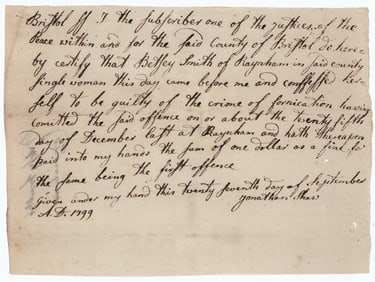 Bristol ss I the subscriber one of the justices of the
Peace within and for the said County of Bristol do here-
by certify that Betsey Smith of Raynham in said county
single woman this day came before me and confesses her-
self to be guilty of the crime of fornication having
comitted the said offence on or about the twenty fifth
day of December last at Raynham and hath thereupon
paid into my hands the sum of one dollar as a fine for
the same being the first offence
Given under my hand this twenty seventh day of September
A.D. 1799 Jonathan Shaw